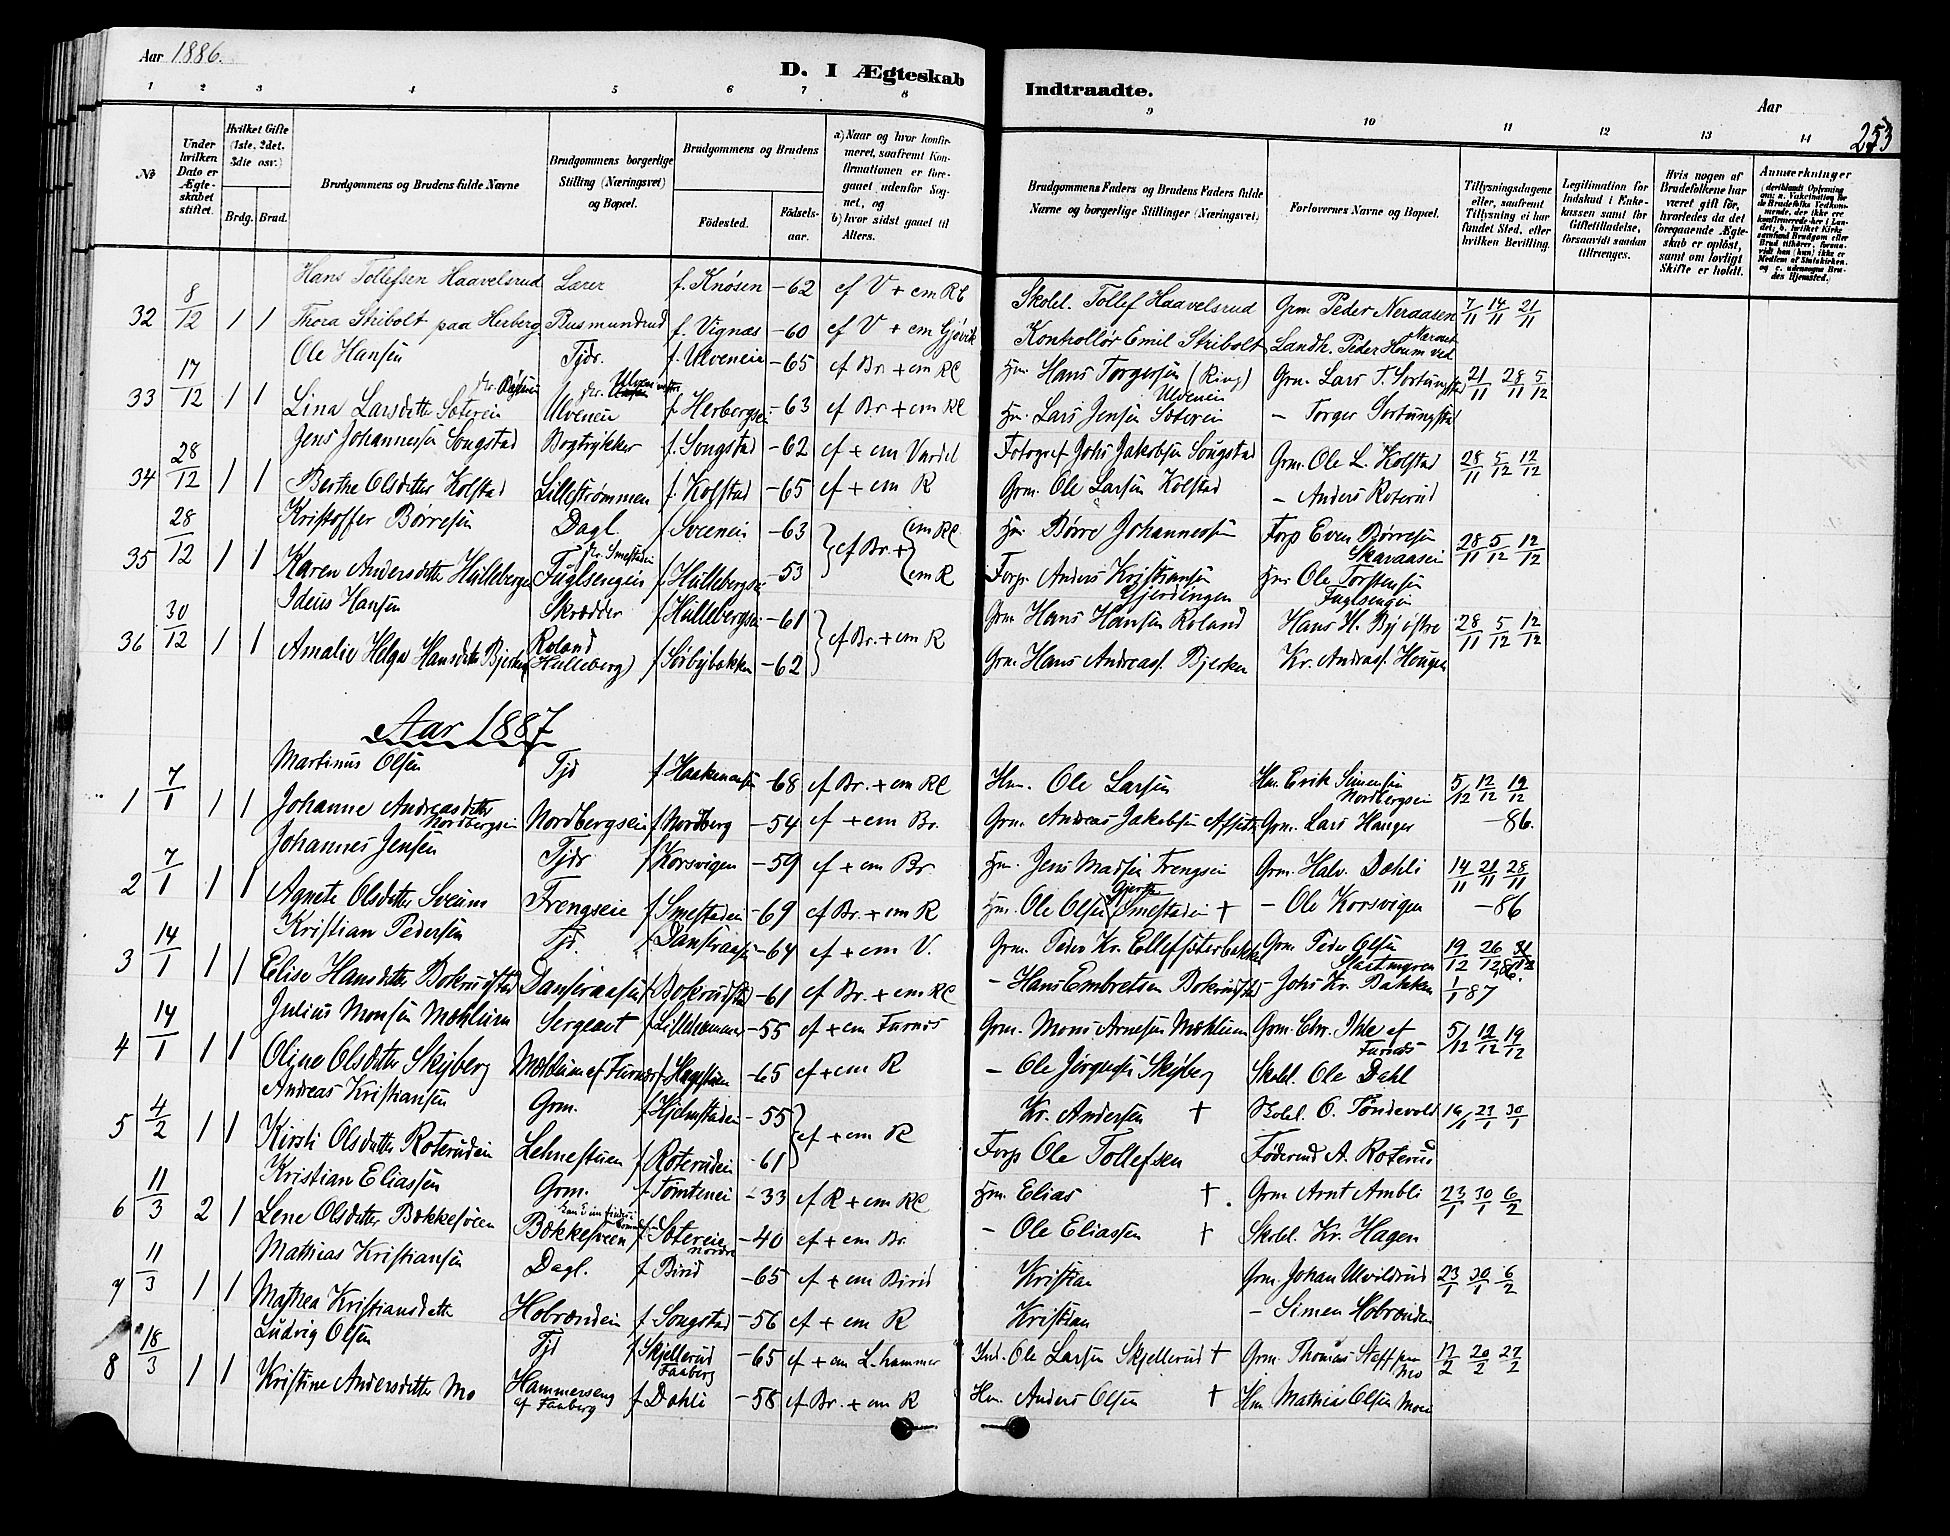 Aar 1886.
D. I Ægteskab Indtraadte.
Aar
253
1 2 3 4 5 6 7 8 9 10 11 12 13 14
No
Under hvilken Dato er Ægteskabet stiftet.
Hvilket Gifte (1ste, 2det, 3die osv.)
Brdg. Brud.
Brudgommens og Brudens fulde Navne
Brudgommens borgerlige Stilling (Næringsvei) og Bopæl.
Brudgommens og Brudens
Fødested. Fødselsaar.
a) Naar og hvor konfirmeret, saafremt Konfirmationen er foregaaet udenfor Sognet, og
b) hvor sidst gaaet til Alters.
Brudgommens Faders og Brudens Faders fulde Navne og borgerlige Stillinger (Næringsvei).
Forlovernes Navne og Bopæl.
Tillysningsdagene eller, saafremt Tillysning ei har fundet Sted, efter hvilken Bevilling.
Legitimation for Indskud i Enkekassen samt for Giftetilladelse, forsaavidt saadan tiltrænges.
Hvis nogen af Brudefolkene har været gift før, hvorledes da det foregaaende Ægteskab er opløst, samt om lovligt Skifte er holdt.
Anmærkninger
Hans Tollefsen Haavelsrud Lærer f. Knøsen -62 cf V + cm RC Skolel. Tollef Haavelsrud Grm Peder Neraasen 7/11 14/11 21/11
32 8/12 1 1 Thora Stribolt paa Herberg Busmundrud f. Vignæs -60 cf V + cm Gjøvik Kontrollør Emil Stribolt Landh. Peder Houm ved
Ole Hansen Tjdr. f. Ulveneie -65 cf Br + cm RC Hm Hans Torgersen (Ring) Ulveneie Grm. Lars T. Sortungstad 21/11 28/11 5/12
33 17/12 1 1 Lina Larsdatter Sæterei Ulveneie f Herbergsei -63 cf Br + cm RC Hm. Lars Jensen Sæterei - Torger Sortungstad
Jens Johannessen Songstad Bogtrykker f. Songstad -62 cf + cm Vardel Fotograf Johs Jakobsen Songstad Grm. Ole L. Kolstad 28/11 5/12 12/12
34 28/12 1 1 Berthe Olsdatter Kolstad Lillestrømmen f. Kolstad -65 cf + cm R Grm. Ole Larsen Kolstad - Anders Roterud
Kristoffer Børresen Dagl f Sveenei -63 cf Br + cm RC Hm Børre Johannessen Forp Even Børresen Skaraasei 28/11 5/12 12/12
35 28/12 1 1 Karen Andersdatter Hullebergei dr. Smestadei Fuglsengen f. Hullebergsei -53 cm R Forp. Anders Kristiansen Gjerdingen Hm Ole Torstensen Fuglsengen
Ideus Hansen Skrædder f Hullebergsei -61 cf Br. + cm R Grm Hans Hansen Roland Hans H. By østre 28/11 5/12 12/12
36 30/12 1 1 Amalie Helga Hansdatter Bjerken Roland (Hulleberg) f Sørbybakken -62 Grm. Hans Andreasf. Bjerken Kr. Andreasf. Hougen
Aar 1887
Martinus Olsen Tjd f Haakenaasen -68 cf Br. + cm RC Hm. Ole Larsen Hm Erik Simensen Nordbergsei 5/12 12/12 19/12
1 7/1 1 1 Johanne Andreasdatter Nordbergsei Nordbergsei f Nordberg -54 cf + cm Br. Grm. Andreas Jakobsen Grm. Lars Hanger -86.
Johannes Jensen Tjdr f Korsvigen -59 cf + cm Br Hm. Jens Madsen Frengsei Grm. Halv. Dæhli 14/11 21/11 28/11
2 7/1 1 1 Agnete Olsdatter Sveum Frengseie f Smestadei -69 cf Br. + cm R Hm. Ole Olsen Smestadei † - Ole Korsvigen -86
Kristian Pedersen Tjd. f Danseraasen -64 cf + cm V. Grm. Peder Kr. Ellefsæterbakken Grm. Peder Olsen 19/12 26/12
3 14/1 1 1 Elise Hansdatter Bokrudstad Danseraasen f Bokrudstad -61 cf Br. + cm RC - Hans Embretsen Bokrudstad - Johs Kr. Bakken 1/1 87
Julius Monsen Mæhlum Sergeant f Lillehammer -55 cf + cm Furnes Grm. Mons Arnesen Mæhlum Grm. Chr. Ihle af Furnæs 5/12 12/12 19/12
4 14/1 1 1 Oline Olsdatter Skyberg Mæhlum af Furnæs f Hagestuen -65 cf + cm R - Ole Jørgensen Skyberg Skolel. Ole Dahl
Andreas Kristiansen Grm. f Hjelmstadei -55 cf + cm R Kr. Andersen † Skolel. O. Tøndevold 16/1 23/1 30/1
5 4/2 1 1 Kirsti Olsdatter Roterudein Lehnestuen f Roterudein -61 Forp Ole Tollefsen Føderaad A. Roterud
Kristian Eliassen Grm. f Tomtenei -33 cf R + cm RC Hm. Elias †. Grm Arnt Ambli 23/1 30/1 6/2
6 11/3 2 1 Lene Olsdatter Bækkesveen Bækkesveen f Sætereie nordre -40 cf + cm Br. - Ole Eliassen † Skolel. Kr. Hagen
Mathias Kristiansen Dagl. f Birid -65 cf + cm Birid Kristian Grm. Johan Ulvildrud 23/1 30/1 6/2
7 11/3 1 1 Mathea Kristiansdatter Hobrænden f. Songstad -56 cf + cm R Kristian - Simen Hobrænden
Ludvig Olsen Tjd f Skjellerud Faaberg -65 cf + cm L.hammer Ind. Ole Larsen Skjellerud † Grm. Thomas Steffsen Mo 13/2 20/2 27/2
8 18/3 1 1 Kristine Andersdatter Mo Hammerseng af Faaberg f Dahli -58 cf Br. + cm R Hm. Anders Olsen † Hm Mathias Olsen Moei